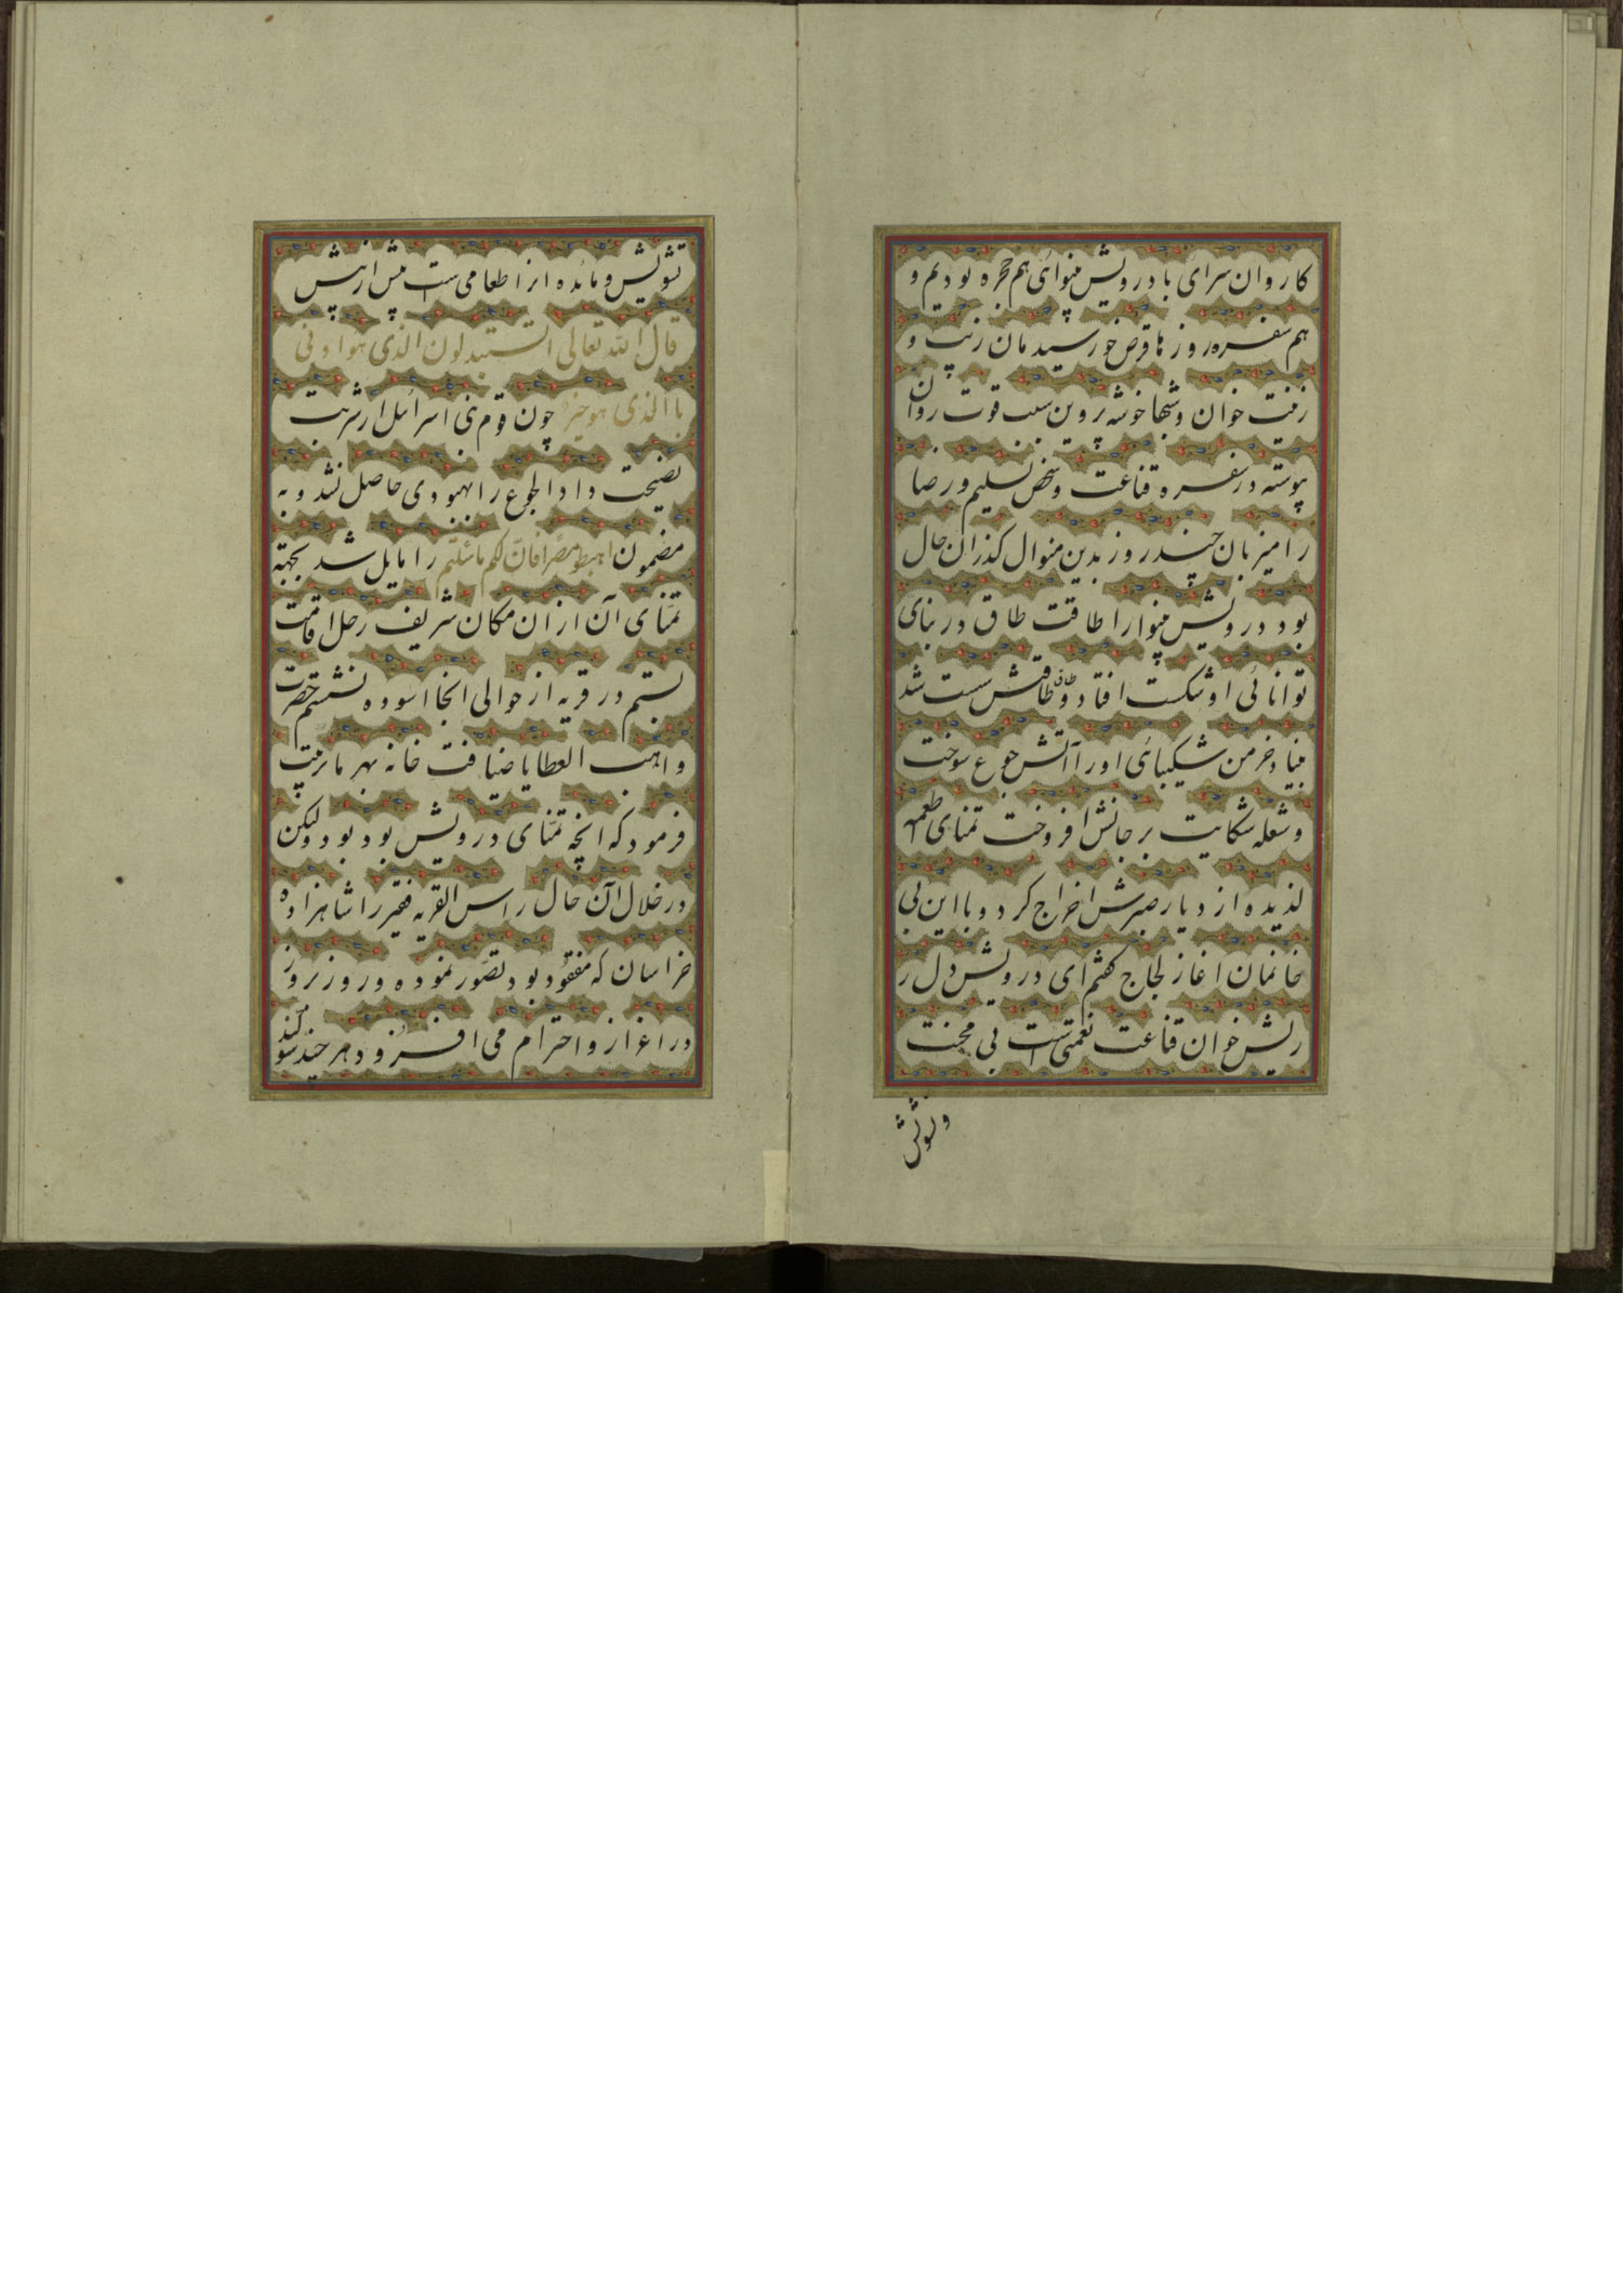 کاروان سرای با درویش بینوائی هم حجره بودیم و
هم سفره روزها قرص خورشیدمان زینت و
زینت خوان و شبها خوشه پروین سبب قوت روان
پیوسته در سفره قناعت و شخص تسلیم و رضا
را میزبان چند روز بدین منوال کذران حال
بود درویش بینوا را طاقت طاق و بنای
توانائی او شکست افتاد و طاقتش سست شد
بنیاد خرمن شکیبائی او را آتش جوع سوخت
و شعله شکایت بر جانش افروخت تمنای اطعمه
لذیده از دیار صبرش اخراج کرد و با این بی
خانمان اغاز لجاج کفتم ای درویش دل ر
ریش خوان قناعت نعمتی است بی محنت
و تشویش
تشویش و مائده از اطعامی ست بیش از پیش
قال الله تعالی اتستبدلون الذی هو ادنی
باالذی هو خیر چون قوم بنی اسرائیل از شربت
نصیحت داء الجوع را بهبودی حاصل نشد و به
مضمون اهبطو مصرا فان لکم ما سئلتم را مایل شد بجهة
تمنای آن از ان مکان شریف رحل اقامت
بستم در قریه از حوالی انجا اسوده نشستم حضرت
واهب العطایا ضیافت خانه بهر ما ترتیب
فرمود که انچه تمنای درویش بود بود ولیکن
در خلال آن حال راس القریه فقیر را شاهزاده
خراسان که مفقود بود تصور نموده و روز بروز
در اعزاز و احترام می افزود هر چند سوکند